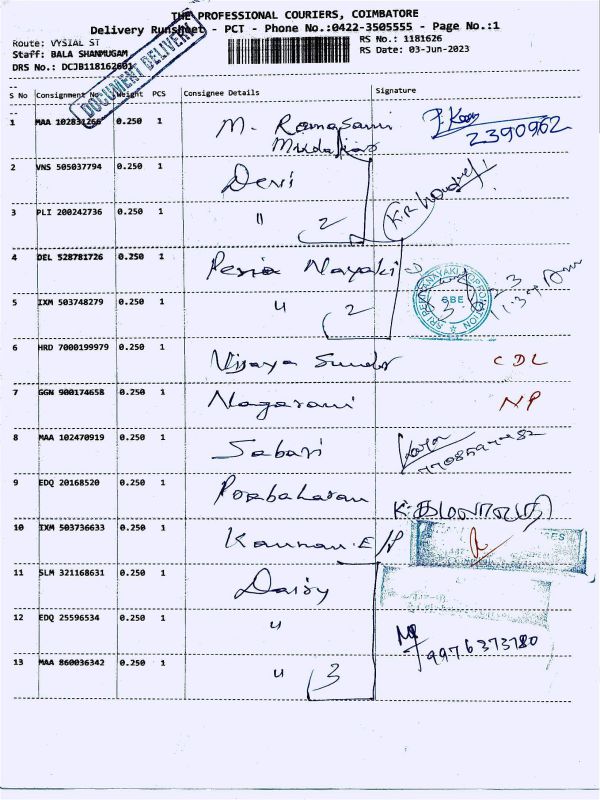 THE PROFESSIONAL COURIERS, COIMBATORE
Delivery Runsheet - PCT - Phone No.:0422-3505555 - Page No.:1
Route: VYSIAL ST
RS No.: 1181626
Staff: BALA SHANMUGAM
RS Date: 03-Jun-2023
DRS No.: DCJB118162601
DOCUMENT DELIVERY
S No Consignment No. Weight PCS Consignee Details Signature
1 MAA 102831266 0.250 1 M. Ramasami
Mudaliar
2390962
2 VNS 505037794 0.250 1 Devi
3 PLI 200242736 0.250 1 " 2
4 DEL 528781726 0.250 1 Peria Nayaki
5 IXM 503748279 0.250 1 " 2
CBE
6 HRD 7000199979 0.250 1 Vijaya Sundar CDL
7 GGN 900174658 0.250 1 Nagarani NP
8 MAA 102470919 0.250 1 Sabari
9 EDQ 20168520 0.250 1 Prabakaran
10 IXM 503736633 0.250 1 Kannan.E
11 SLM 321168631 0.250 1 Daisy
12 EDQ 25596534 0.250 1 "
9976373780
13 MAA 860036342 0.250 1 " 3